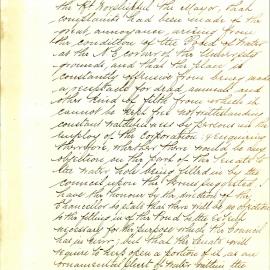 the Rt. Worshipful the Mayor, that
complaints had been made of the
great annoyance, arising from
the condition of the Pond of Water
at the N.E. corner of the University
grounds, and that the place is
constantly offensive from being made
a receptacle for dead animals and
other kind of filth from which it
cannot be kept free notwithstanding
constant watchfulness by persons in the
employ of the Corporation & enquiring
therefore, whether there would be any
objection on the part of the Senate to
the water hole being filled in by the
Council, upon the terms suggested, I
have the honor by the direction of the
Chancellor to state that there will be no objection
to the filling in of the Pond to the extent
necessary for the purpose which the Council
has in view; but that the Senate will
require to keep open a portion of it, as an
ornamental sheet of water within the